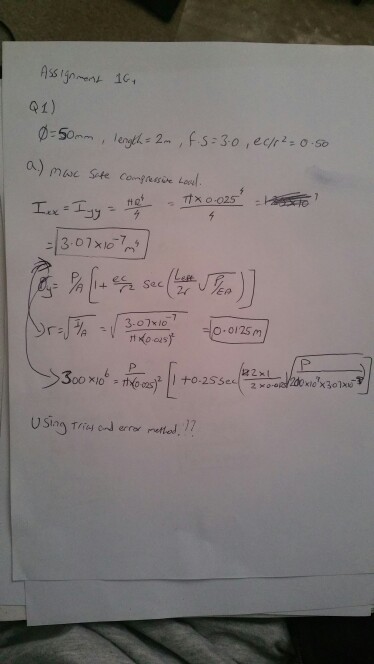 Assignment 1G.
Q1)
Ø=50mm, length=2m, f.s=3.0, ec/r²=0.50
a.) max safe compressive load.
Ixx = Iyy = πR⁴/4 = π×0.025⁴/4 =
= 3.07×10⁻⁷m⁴
σy = P/A [1 + ec/r² sec(Leff/2r √P/EA)]
r=√I/A = √3.07×10⁻⁷/π×(0.025)² = 0.0125m
300×10⁶ = P/π×(0.025)² [1 + 0.25 sec(
Using Trial and error method.!!